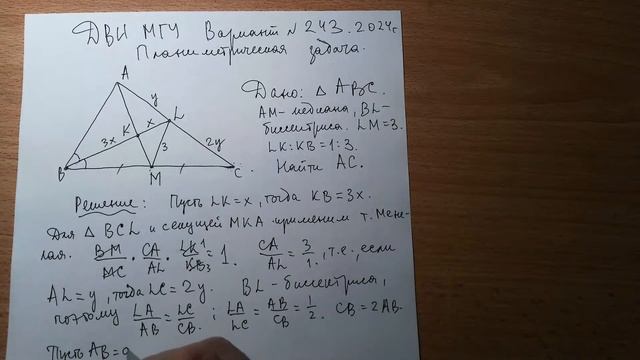 ДВИ МГУ Вариант № 243. 2024г
Планиметрическая задача.
A
y
L
K x
3x
3
2y
B
M
C
Дано: △ ABC.
AM - медиана, BL -
биссектриса. LM = 3.
LK : KB = 1 : 3.
Найти AC.
Решение: Пусть LK = x, тогда KB = 3x.
Для △ BCL и секущей MKA применим т. Мене-
лая. BM/MC · CA/AL · LK 1/KB 3 = 1. CA/AL = 3/1, т.е, если
AL = y, тогда LC = 2y. BL - биссектриса,
поэтому LA/AB = LC/CB ; LA/LC = AB/CB = 1/2. CB = 2AB.
Пусть AB = a